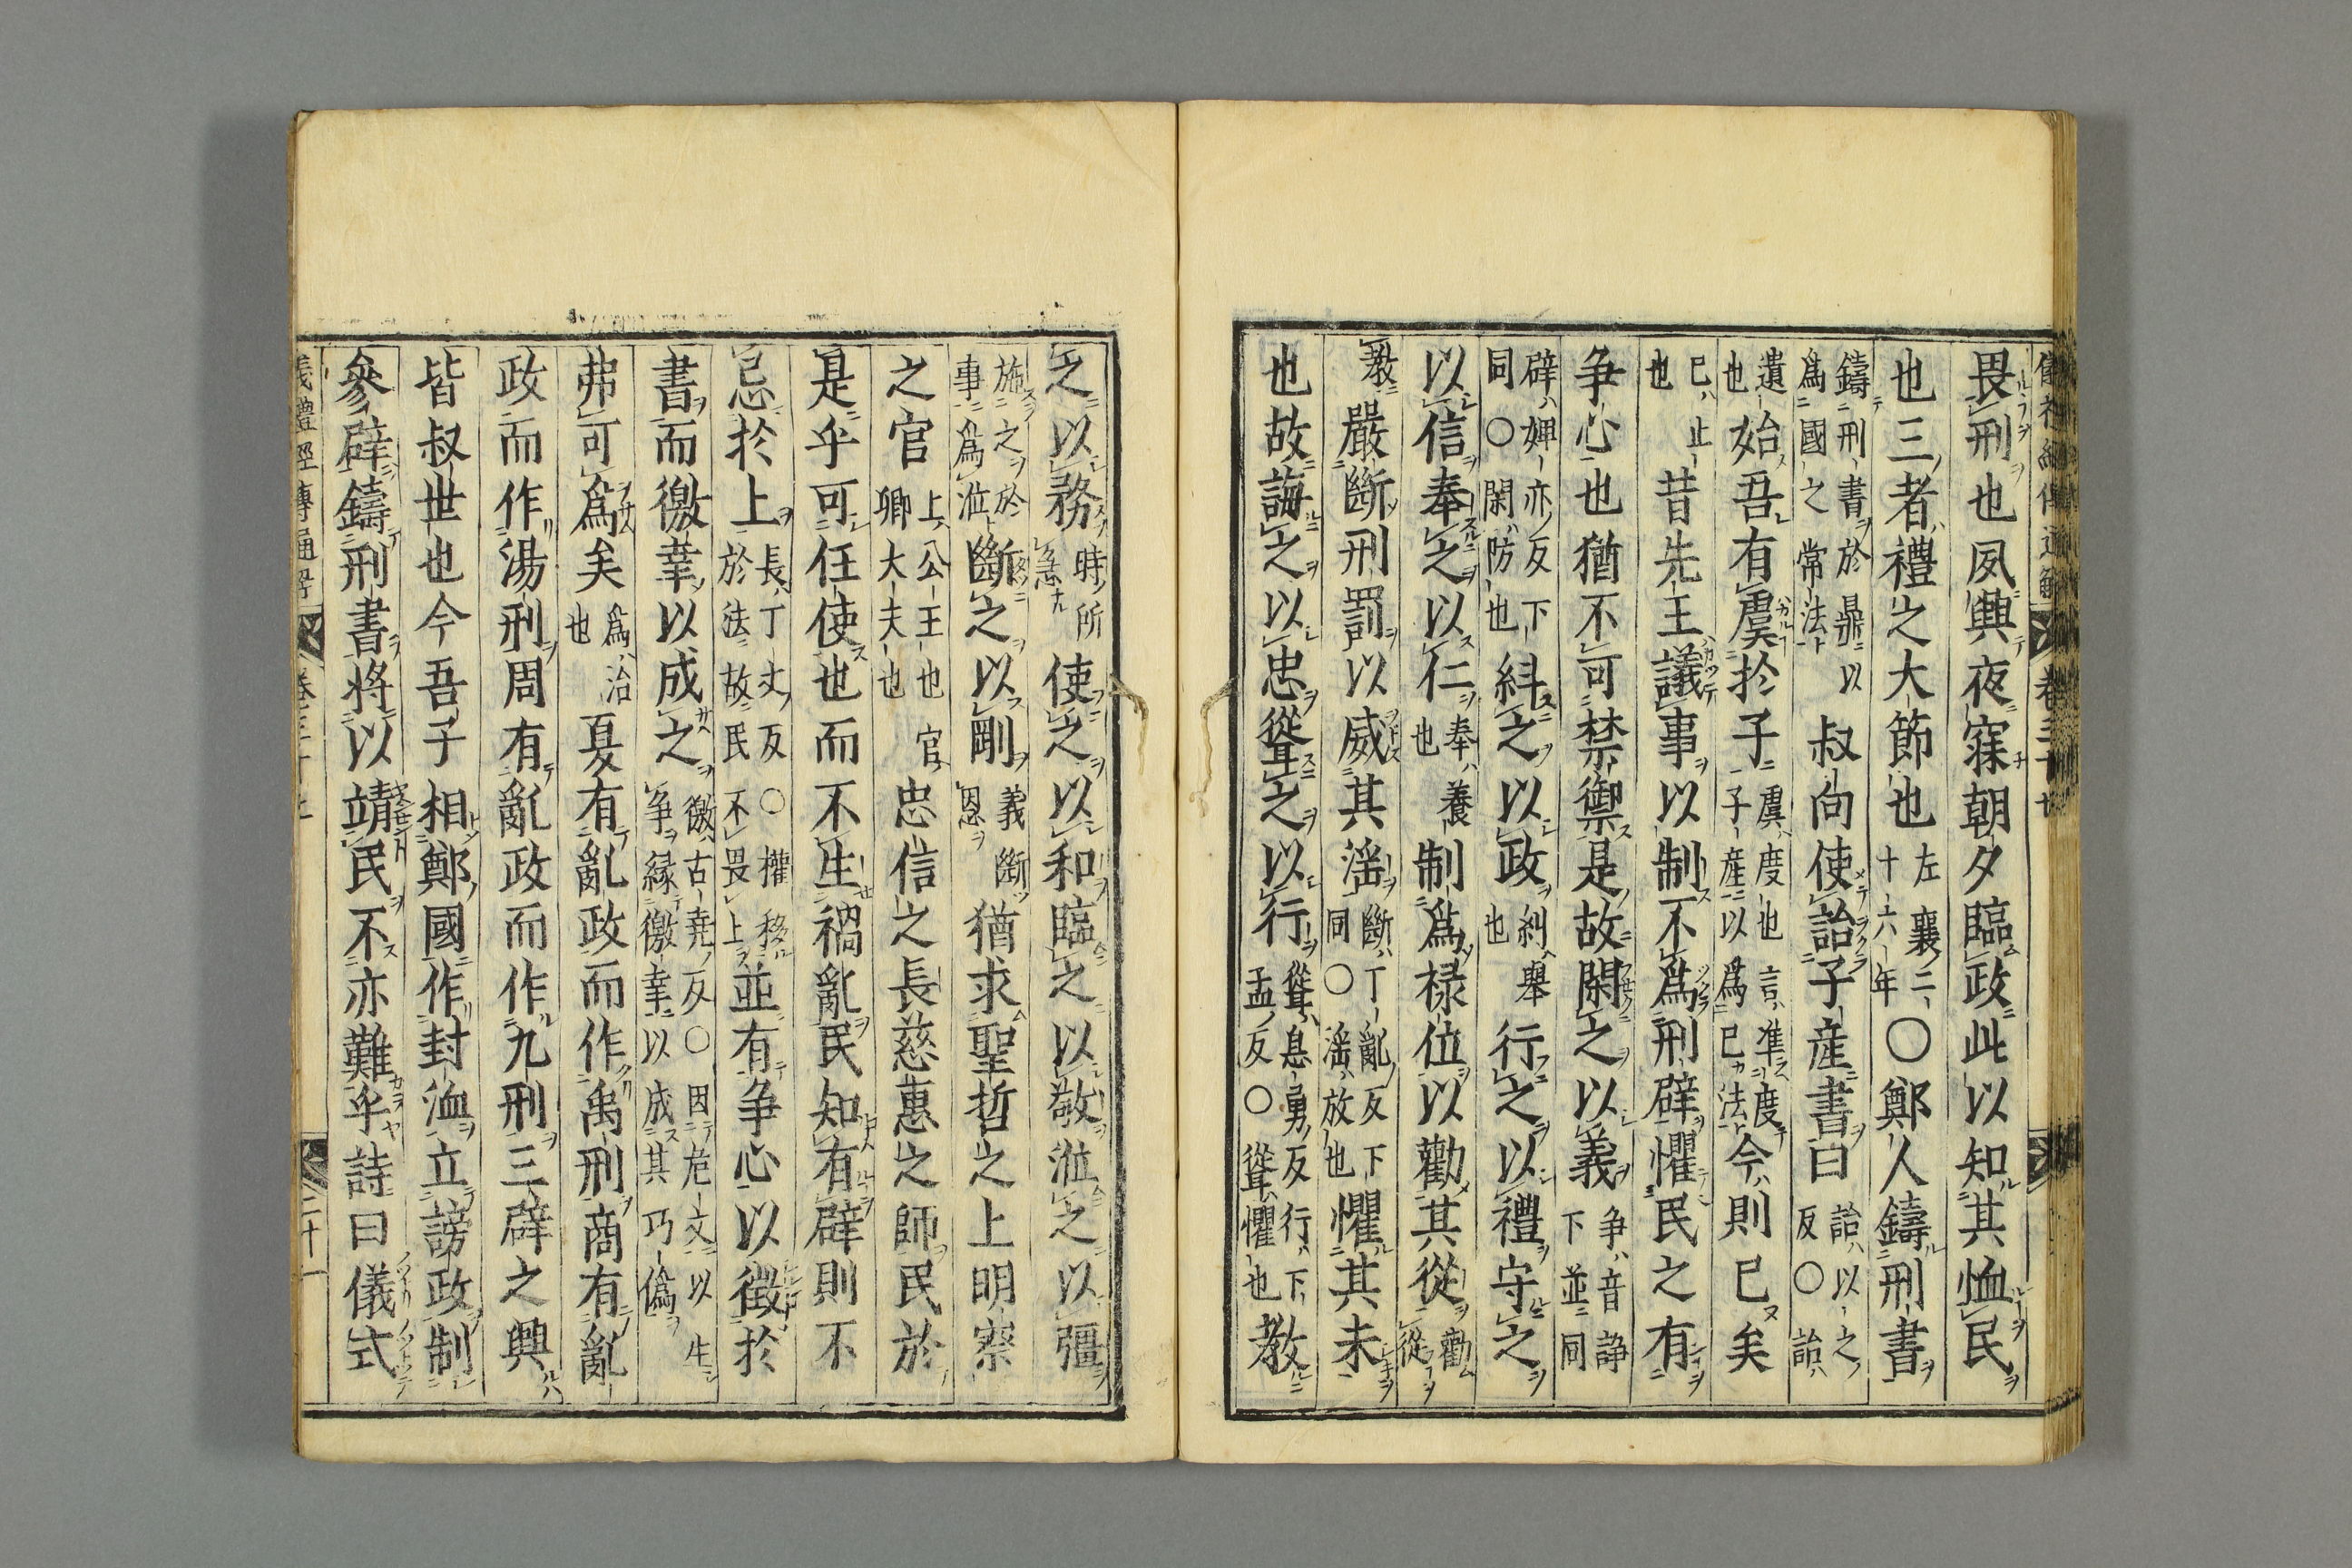 卷三十七
畏刑也夙興夜寐朝夕臨政此以知其恤民
也三者禮之大節也左襄二十六年〇鄭人鑄刑書
鑄刑書於鼎以爲國之常法叔向使詒子産書曰詒以之反〇詒
遺也始吾有虞於子虞度也言準度子産以爲已法今則已矣
已止也昔先王議事以制不爲刑辟懼民之有
争心也猶不可禁禦是故閑之以義争音諍下並同
辟婢亦反下同〇閑防也糾之以政糾舉也行之以禮守之
以信奉之以仁奉養也制爲禄位以勸其從勸從
教嚴斷刑罰以威其淫斷丁亂反下同〇淫放也懼其未
也故誨之以忠聳之以行聳息勇反行下孟反〇聳懼也教
之以務時所急使之以和臨之以敬涖之以彊
施之於事爲涖斷之以剛義斷恩猶求聖哲之上明察
之官上公王也官卿大夫也忠信之長慈惠之師民於
是乎可任使也而不生禍亂民知有辟則不
忌於上長丁丈反〇權移於法故民不畏上並有争心以徵於
書而徼幸以成之徼古堯反〇因危文以生争緣徼幸以成其巧偽
弗可爲矣爲治也夏有亂政而作禹刑商有亂
政而作湯刑周有亂政而作九刑三辟之興
皆叔世也今吾子相鄭國作封洫立謗政制
參辟鑄刑書將以靖民不亦難乎詩曰儀式
二十一